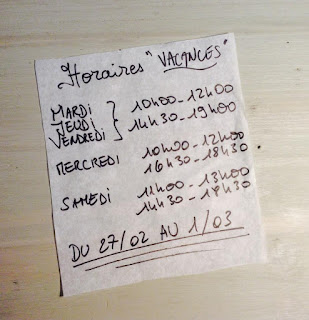 Horaires "VACANCES"
MARDI
JEUDI
VENDREDI
10h00-12h00
14h30-19h00
MERCREDI 10h00-12h00
16h30-18h30
SAMEDI 11h00-13h00
14h30-17h30
DU 27/02 AU 1/03